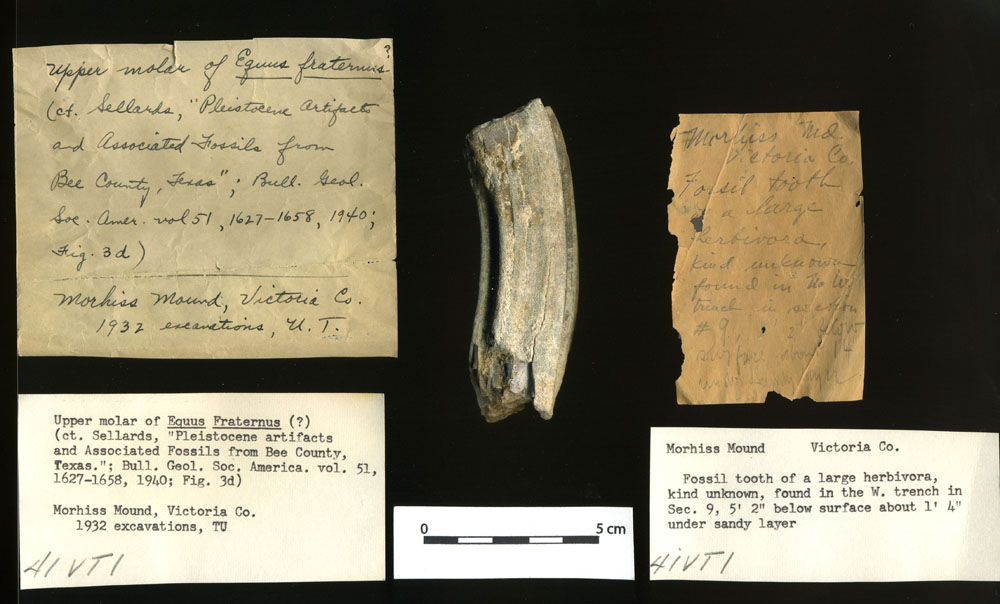 Upper molar of Equus fraternus ?
(ct. Sellards, "Pleistocene Artifacts
and Associated Fossils from
Bee County, Texas"; Bull. Geol.
Soc. Amer. vol 51, 1627-1658, 1940;
Fig. 3d)
Morhiss Mound, Victoria Co.
1932 excavations, U.T.
Upper molar of Equus Fraternus (?)
(ct. Sellards, "Pleistocene artifacts
and Associated Fossils from Bee County,
Texas."; Bull. Geol. Soc. America. vol. 51,
1627-1658, 1940; Fig. 3d)
Morhiss Mound, Victoria Co.
1932 excavations, TU
41VT1
0 5 cm
Morhiss Md.
Victoria Co.
Fossil tooth
a large
herbivora,
kind unknown
found in W.
trench in section
#9,
surface about 1'4
under
Morhiss Mound Victoria Co.
Fossil tooth of a large herbivora,
kind unknown, found in the W. trench in
Sec. 9, 5' 2" below surface about 1' 4"
under sandy layer
41VT1